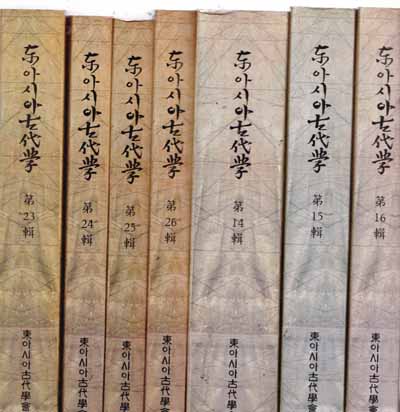 东아시아古代学
第
23
輯
東아시아古代學會
东아시아古代学
第
24
輯
東아시아古代學會
东아시아古代学
第
25
輯
東아시아古代學會
东아시아古代学
第
26
輯
東아시아古代學會
东아시아古代学
第
14
輯
東아시아古代學會
东아시아古代学
第
15
輯
東아시아古代學會
东아시아古代学
第
16
輯
東아시아古代學會